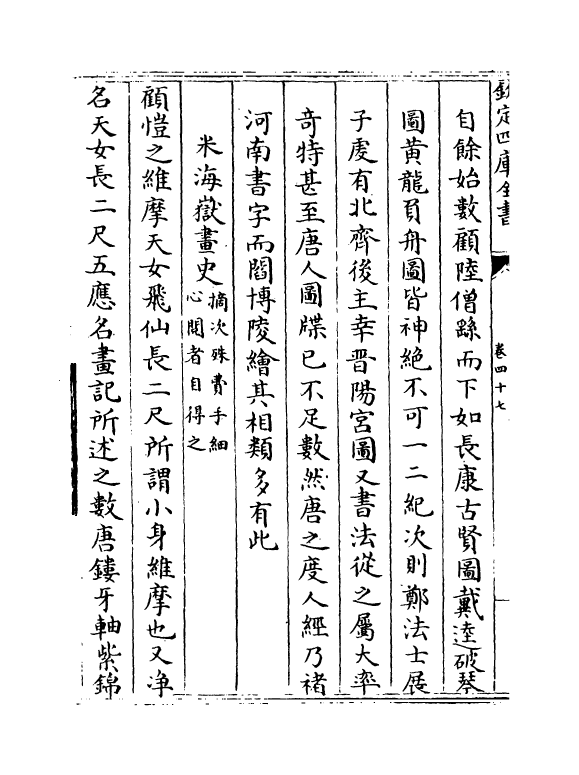 欽定四庫全書
卷四十七
自餘始數顧陸僧繇而下如長康古賢圖戴逵破琴
圖黄龍負舟圖皆神絶不可一二紀次則鄭法士展
子虔有北齊後主幸晉陽宫圖又書法從之屬大率
竒特甚至唐人圖牒已不足數然唐之度人經乃禇
河南書字而閻博陵繪其相類多有此
米海嶽畫史摘次殊費手細
心閲者自得之
顧愷之維摩天女飛仙長二尺所謂小身維摩也又浄
名天女長二尺五應名畫記所述之數唐鏤牙軸紫錦